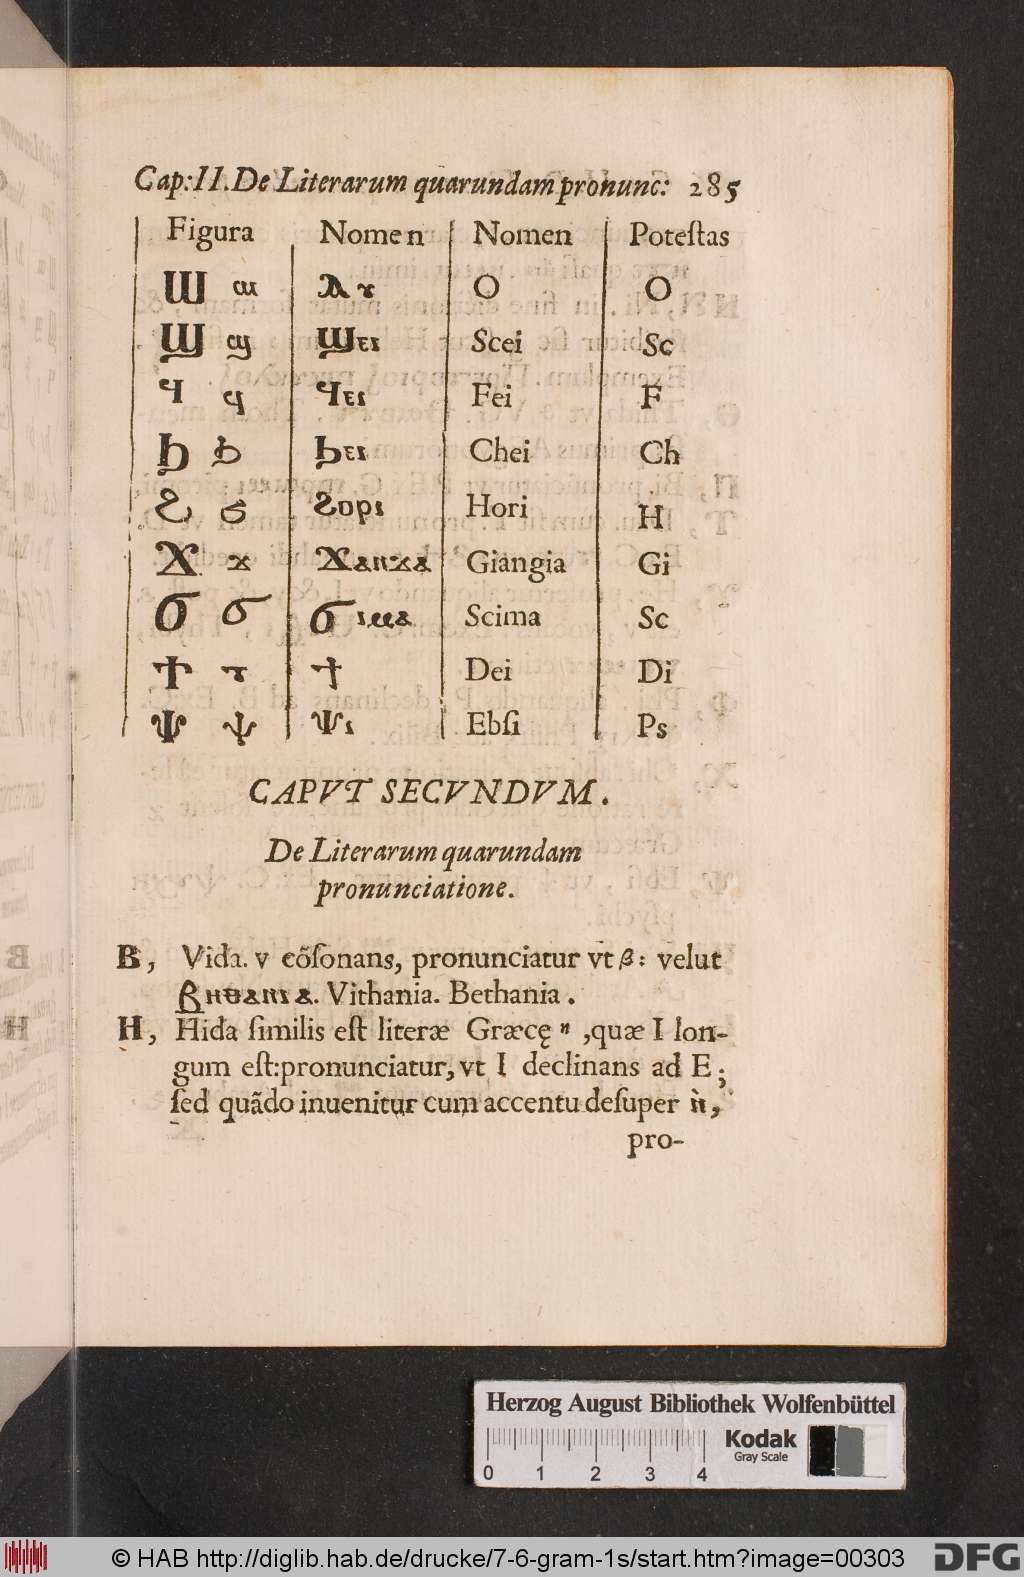 Cap: II. De Literarum quarundam pronunc: 285
Figura Nomen Nomen Poteſtas
Ⲱ ⲱ O O
Ϣ ϣ Ϣⲉⲓ Scei Sc
Ϥ ϥ Ϥⲉⲓ Fei F
Ϧ ϧ Ϧⲉⲓ Chei Ch
Ϩ ϩ Ϩⲟⲣⲓ Hori H
Ϫ ϫ Ϫⲁⲛϫⲁ Giangia Gi
Ϭ ϭ Ϭⲓⲙⲁ Scima Sc
Ϯ ϯ Ϯ Dei Di
Ⲯ ⲯ Ⲯⲓ Ebſi Ps
CAPVT SECVNDVM.
De Literarum quarundam
pronunciatione.
Ⲃ, Vida. v cõſonans, pronunciatur vt β: velut
Ⲃⲏⲑⲁⲛⲓⲁ. Vithania. Bethania.
Ⲏ, Hida ſimilis eſt literæ Græcę η, quæ I lon-
gum eſt: pronunciatur, vt I declinans ad E;
ſed quãdo inuenitur cum accentu deſuper ⲏ̀,
pro-
Herzog August Bibliothek Wolfenbüttel
Kodak
Gray Scale
0 1 2 3 4
© HAB http://diglib.hab.de/drucke/7-6-gram-1s/start.htm?image=00303
DFG